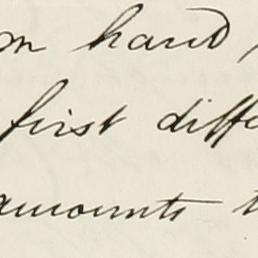 on hand,
first diffe
amounts t